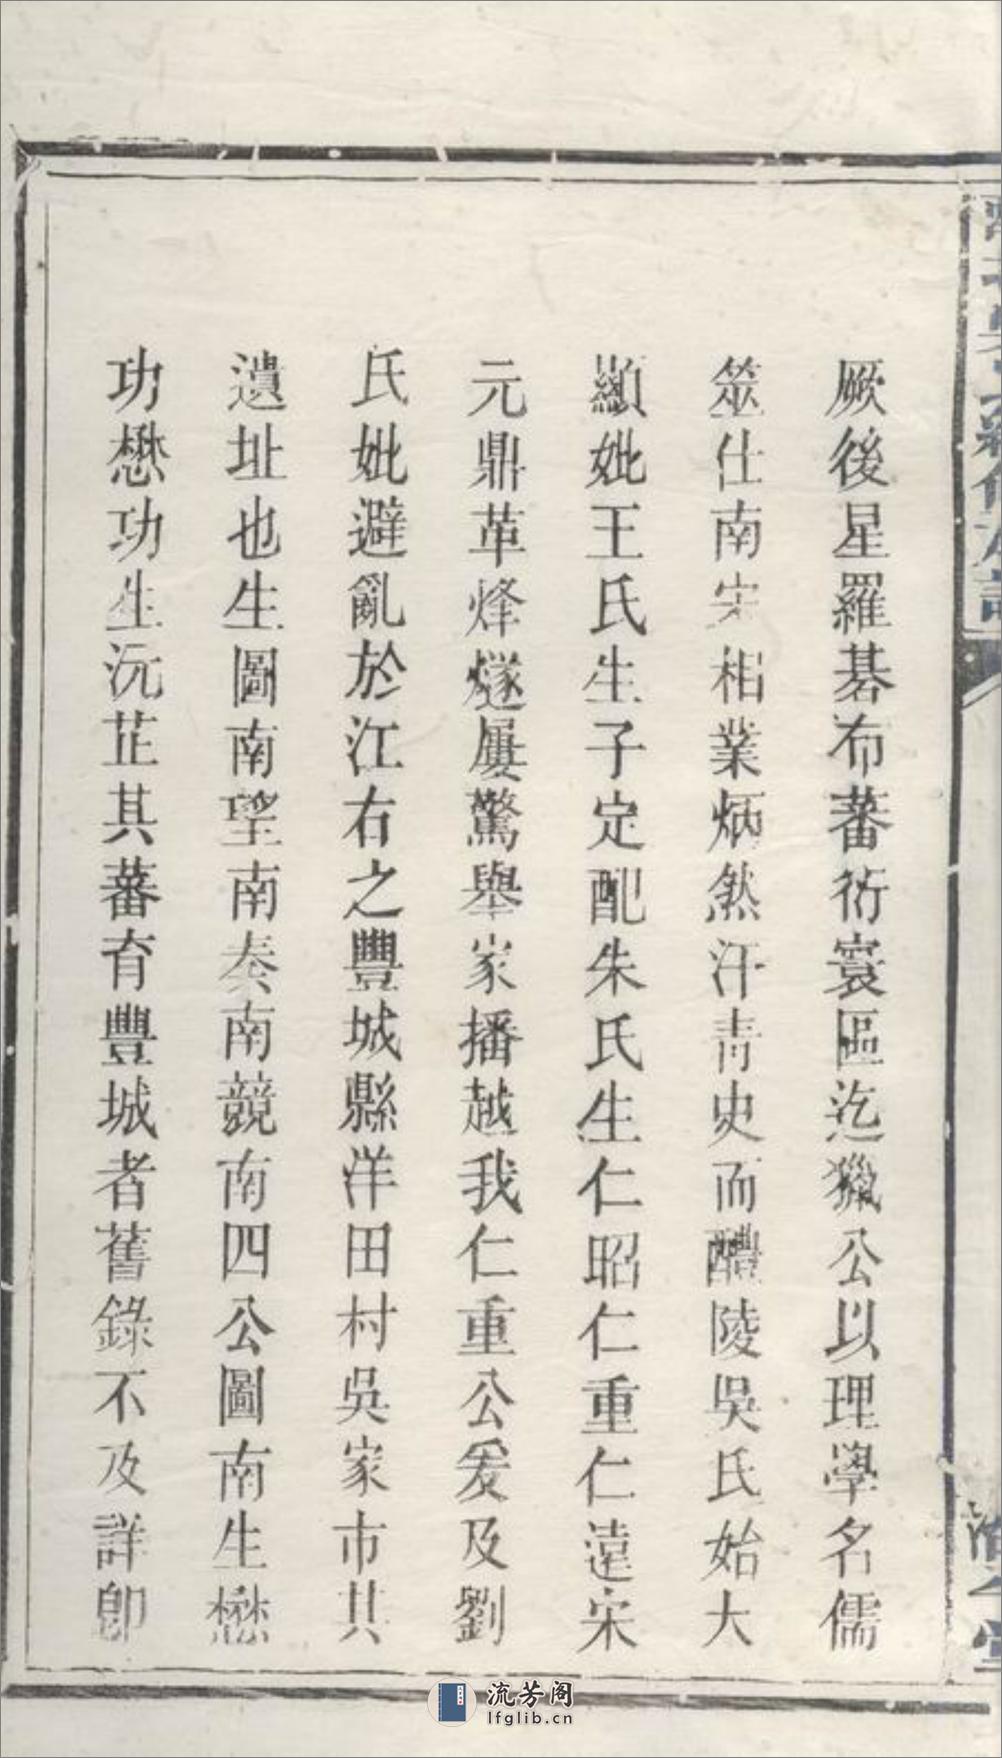 厥後星羅碁布蕃衍寰區迄獵公以理學名儒
筮仕南宋相業炳然汗青史而醴陵吳氏始大
顯妣王氏生子定配朱氏生仁昭仁重仁遠宋
元鼎革烽燧屢驚舉家播越我仁重公爰及劉
氏妣避亂於江右之豐城縣洋田村吳家市其
遺址也生圖南望南奏南競南四公圖南生懋
功懋功生沅芷其蕃育豐城者舊錄不及詳卽
流芳阁
lfglib.cn